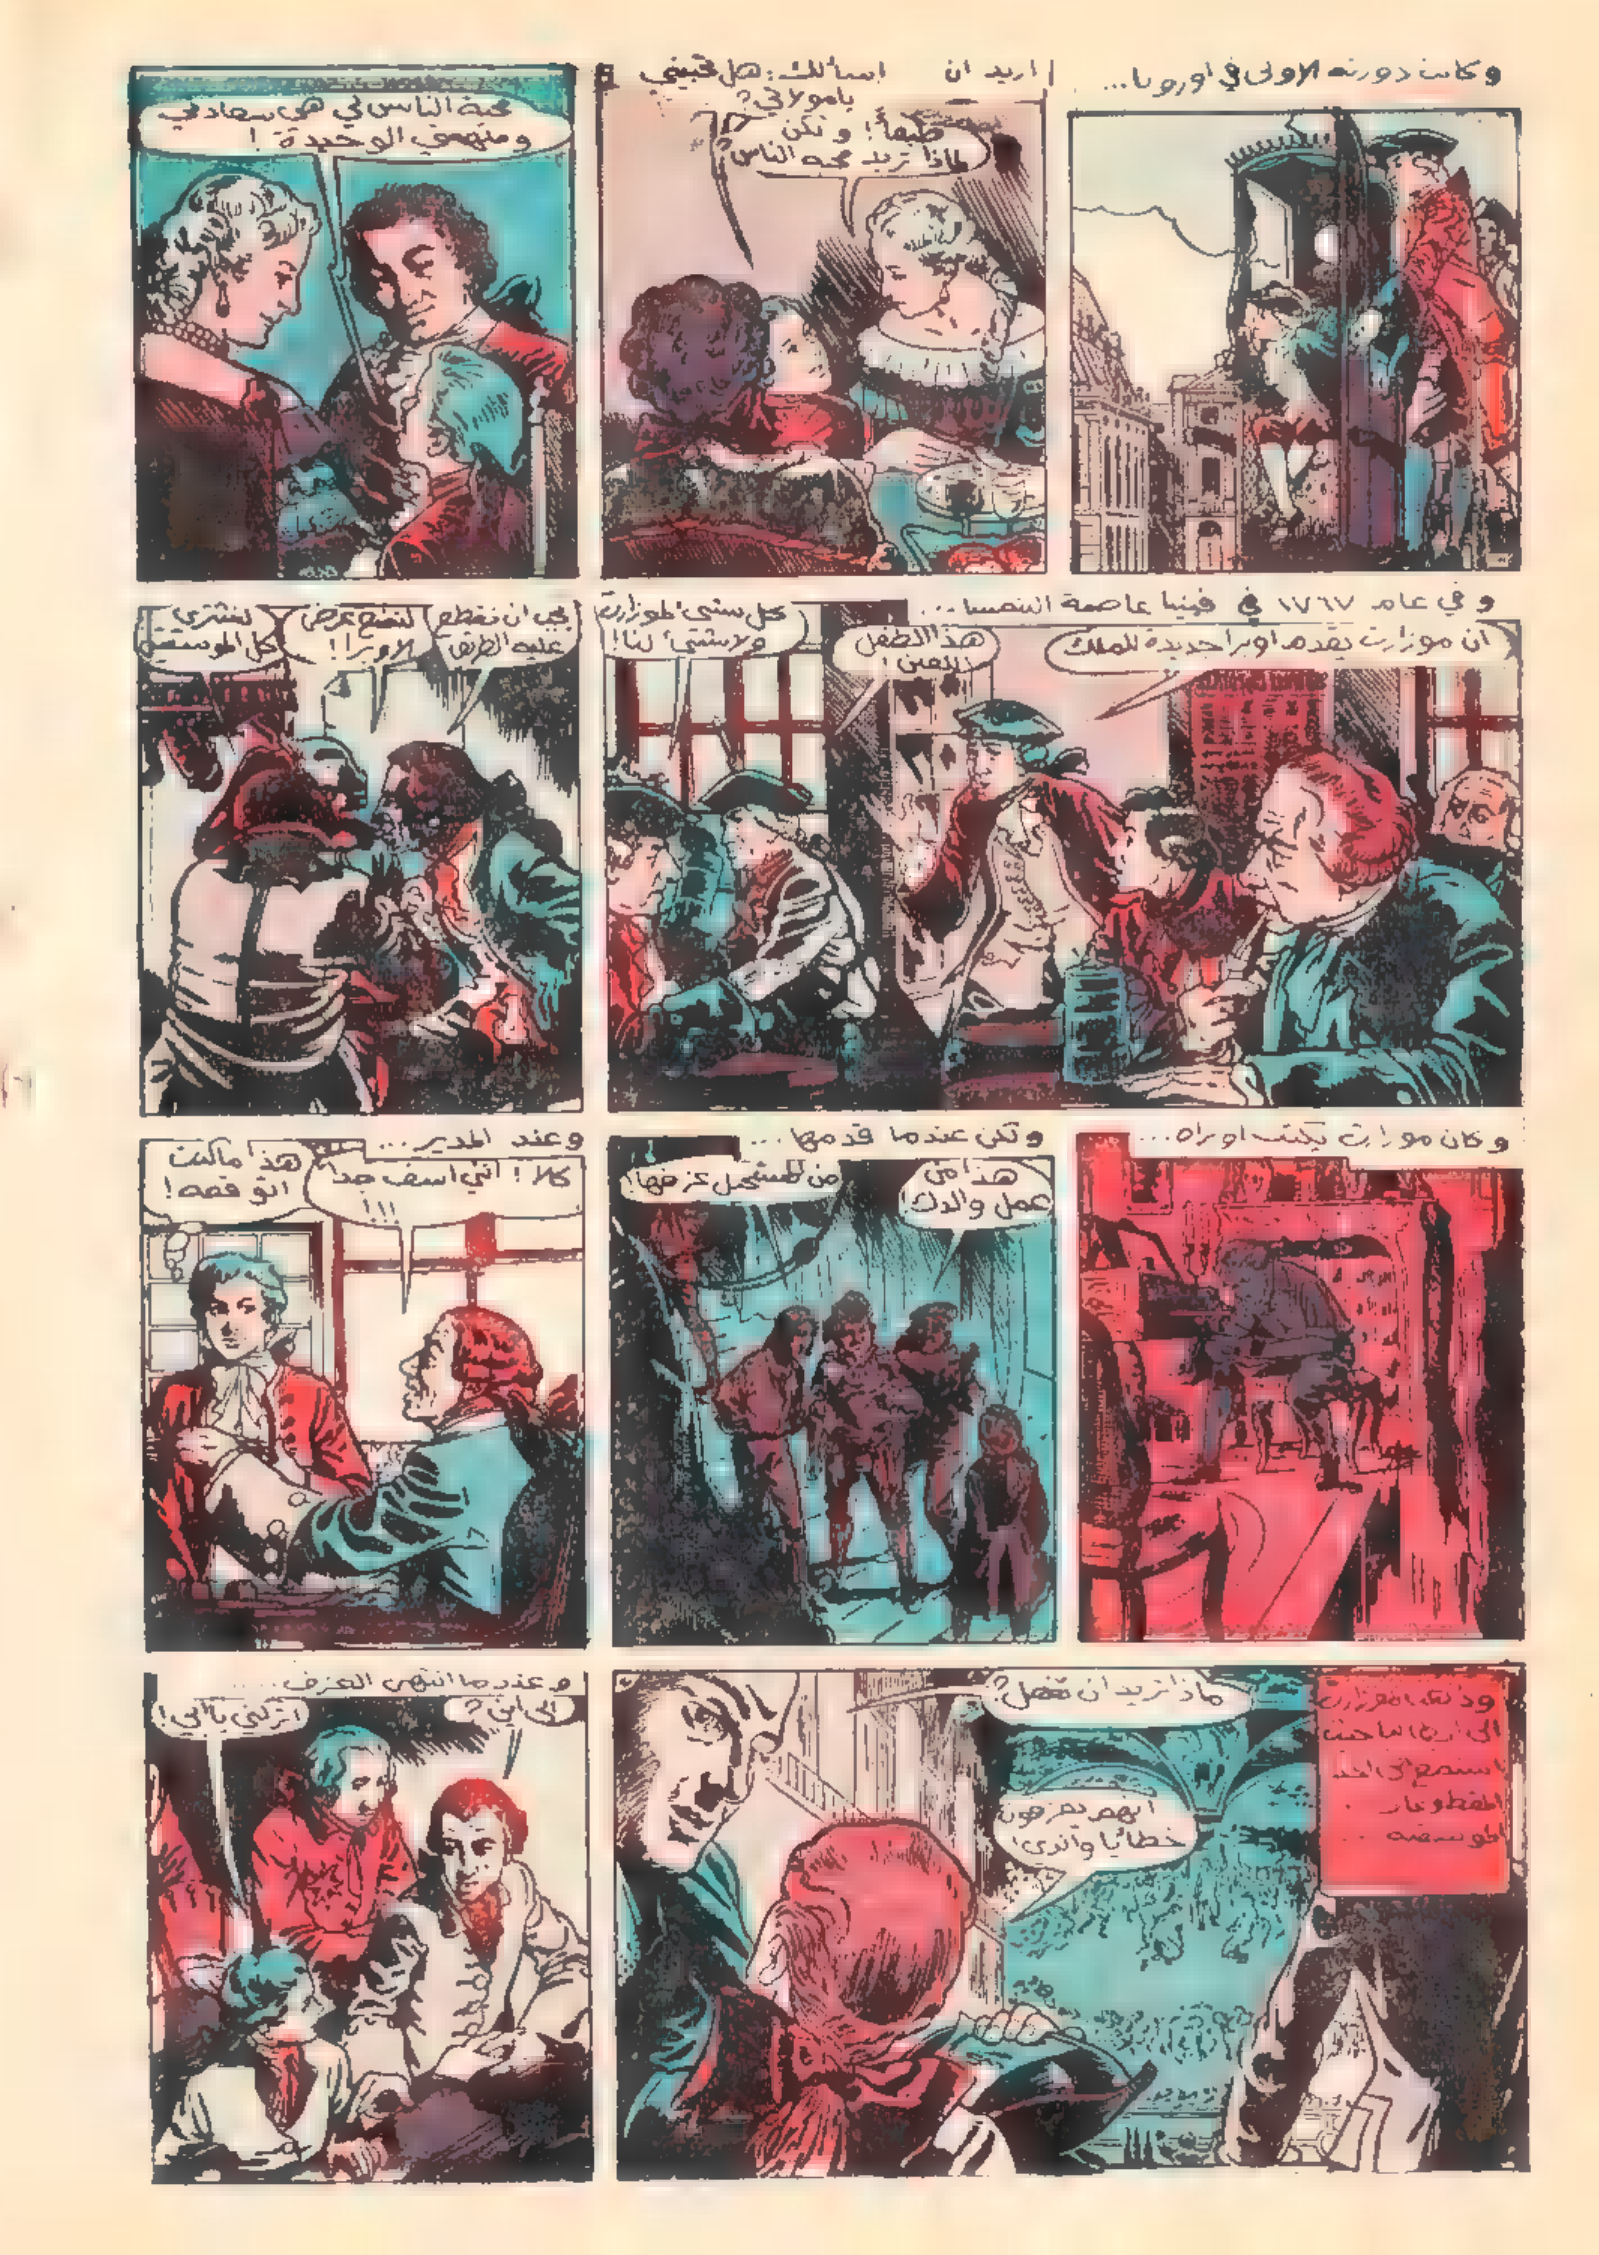 وكانت دورته الاولى في اوروبا...
اريد ان اسألك: هل تحبيني
يا مولاتي؟
طبعاً! ولكن
لماذا تريد محبة الناس؟
محبة الناس لي هي سعادتي
ومتعتي الوحيدة!
وفي عام ١٧٦٧ في فيينا عاصمة النمسا...
ان موزارت يقدم اوبرا جديدة للملك
هذا الطفل
اللعين!
كل شيء لموزارت
ولا شيء لنا!
يجب ان نقطع
عليه الطريق
لنمنع عرض
الاوبرا!
لنشتري
كل الموسيقيين
وكان موزارت يكتب اوبراه...
ولكن عندما قدمها...
هذا من
عمل والدك!
من المستحيل عرضها!
وعند المدير...
كلا! انني اسف جدا
!!!
هذا ما كنت
اتوقعه!
الى ايطاليا حيث
استمع الى احد
المقطوعات
الموسيقية...
ماذا تريد ان تفعل؟
انهم يعزفون
خطأ يا والدي!
وعندما انتهى العزف....
الى اين؟
اتركني يا أبي!